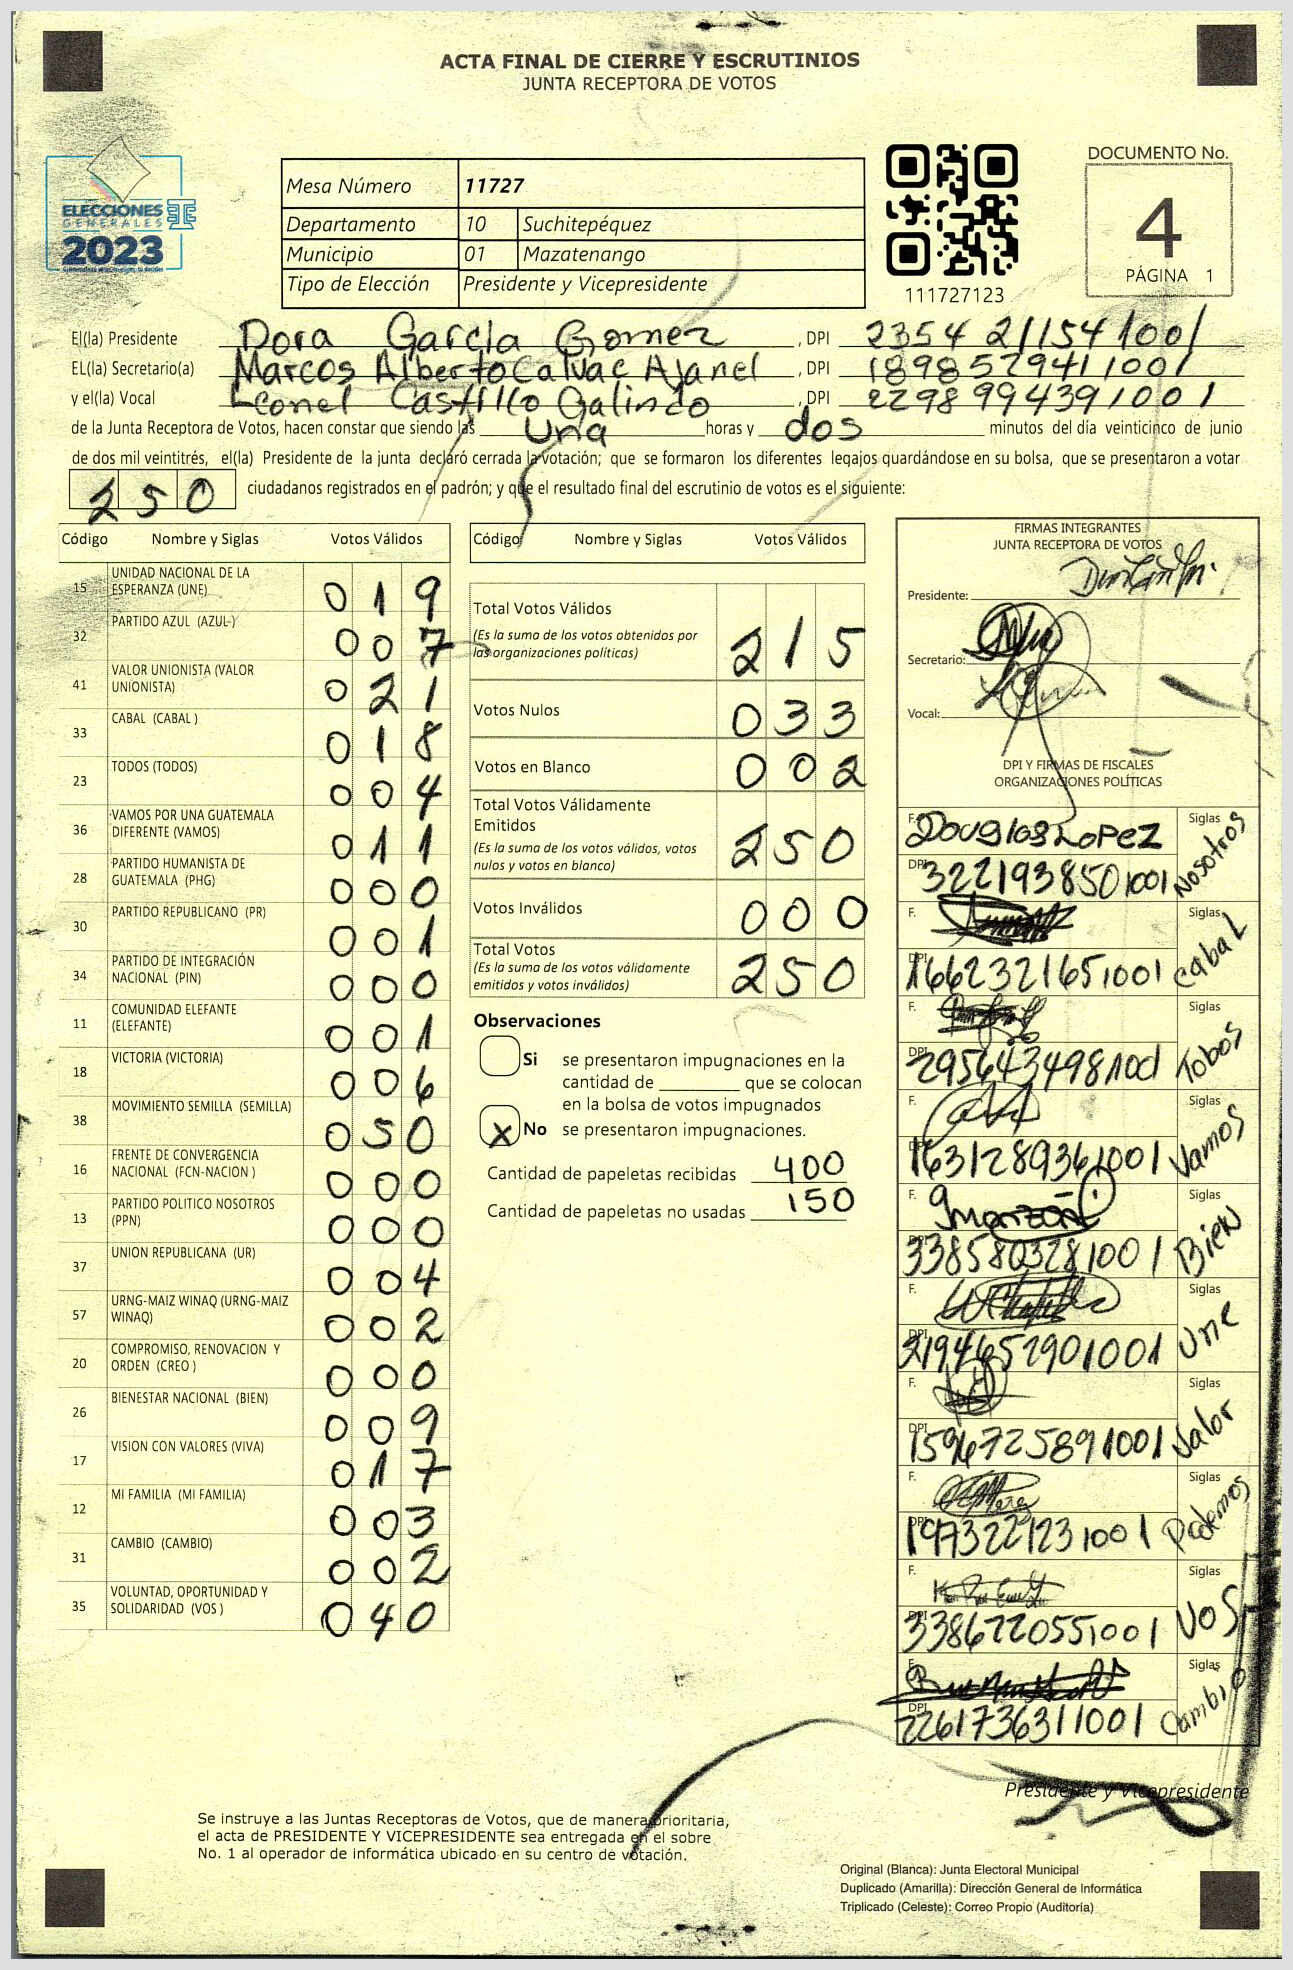 ACTA FINAL DE CIERRE Y ESCRUTINIOS
JUNTA RECEPTORA DE VOTOS
ELECCIONES
GENERALES
2023
Mesa Número 11727
Departamento 10 Suchitepéquez
Municipio 01 Mazatenango
Tipo de Elección Presidente y Vicepresidente
111727123
DOCUMENTO No.
4
PÁGINA 1
El(la) Presidente Dora García Gomez, DPI 2354 21154 1001
EL(la) Secretario(a) Marcos Alberto Calvac Ajanel, DPI 1898 57941 1001
y el(la) Vocal Leonel Castillo Galindo, DPI 2298 99439 1001
de la Junta Receptora de Votos, hacen constar que siendo las Una horas y dos minutos del día veinticinco de junio
de dos mil veintitrés, el(la) Presidente de la junta declaró cerrada la votación; que se formaron los diferentes legajos quardándose en su bolsa, que se presentaron a votar
250 ciudadanos registrados en el padrón; y que el resultado final del escrutinio de votos es el siguiente:
Código Nombre y Siglas Votos Válidos
15 UNIDAD NACIONAL DE LA ESPERANZA (UNE) 019
32 PARTIDO AZUL (AZUL) 007
41 VALOR UNIONISTA (VALOR UNIONISTA) 021
33 CABAL (CABAL ) 018
23 TODOS (TODOS) 004
36 VAMOS POR UNA GUATEMALA DIFERENTE (VAMOS) 011
28 PARTIDO HUMANISTA DE GUATEMALA (PHG) 000
30 PARTIDO REPUBLICANO (PR) 001
34 PARTIDO DE INTEGRACIÓN NACIONAL (PIN) 000
11 COMUNIDAD ELEFANTE (ELEFANTE) 001
18 VICTORIA (VICTORIA) 006
38 MOVIMIENTO SEMILLA (SEMILLA) 050
16 FRENTE DE CONVERGENCIA NACIONAL (FCN-NACION ) 000
13 PARTIDO POLITICO NOSOTROS (PPN) 000
37 UNION REPUBLICANA (UR) 004
57 URNG-MAIZ WINAQ (URNG-MAIZ WINAQ) 002
20 COMPROMISO, RENOVACION Y ORDEN (CREO ) 000
26 BIENESTAR NACIONAL (BIEN) 009
17 VISION CON VALORES (VIVA) 017
12 MI FAMILIA (MI FAMILIA) 003
31 CAMBIO (CAMBIO) 002
35 VOLUNTAD, OPORTUNIDAD Y SOLIDARIDAD (VOS ) 040
Código Nombre y Siglas Votos Válidos
Total Votos Válidos 215
(Es la suma de los votos obtenidos por
las organizaciones políticas)
Votos Nulos 033
Votos en Blanco 002
Total Votos Válidamente
Emitidos 250
(Es la suma de los votos válidos, votos
nulos y votos en blanco)
Votos Inválidos 000
Total Votos 250
(Es la suma de los votos válidamente
emitidos y votos inválidos)
Observaciones
Si se presentaron impugnaciones en la
cantidad de ________ que se colocan
en la bolsa de votos impugnados
X No se presentaron impugnaciones.
Cantidad de papeletas recibidas 400
Cantidad de papeletas no usadas 150
FIRMAS INTEGRANTES
JUNTA RECEPTORA DE VOTOS
Presidente:
Secretario:
Vocal:
DPI Y FIRMAS DE FISCALES
ORGANIZACIONES POLÍTICAS
F. Douglas Lopez Siglas Nosotros
DPI 3221938501001
F. Siglas Cabal
DPI 1662321651001
F. Siglas Todos
DPI 2956434981001
F. Siglas Vamos
DPI 1631289361001
F. Siglas Bien
DPI 3385803281001
F. Siglas Une
DPI 2194652901001
F. Siglas Valor
DPI 1596725891001
F. Siglas Podemos
DPI 1973221231001
F. Siglas VOS
DPI 3386722055 1001
F. Siglas Cambio
DPI 2261736311001
Presidente y Vicepresidente
Se instruye a las Juntas Receptoras de Votos, que de manera prioritaria,
el acta de PRESIDENTE Y VICEPRESIDENTE sea entregada en el sobre
No. 1 al operador de informática ubicado en su centro de votación.
Original (Blanca): Junta Electoral Municipal
Duplicado (Amarilla): Dirección General de Informática
Triplicado (Celeste): Correo Propio (Auditoría)